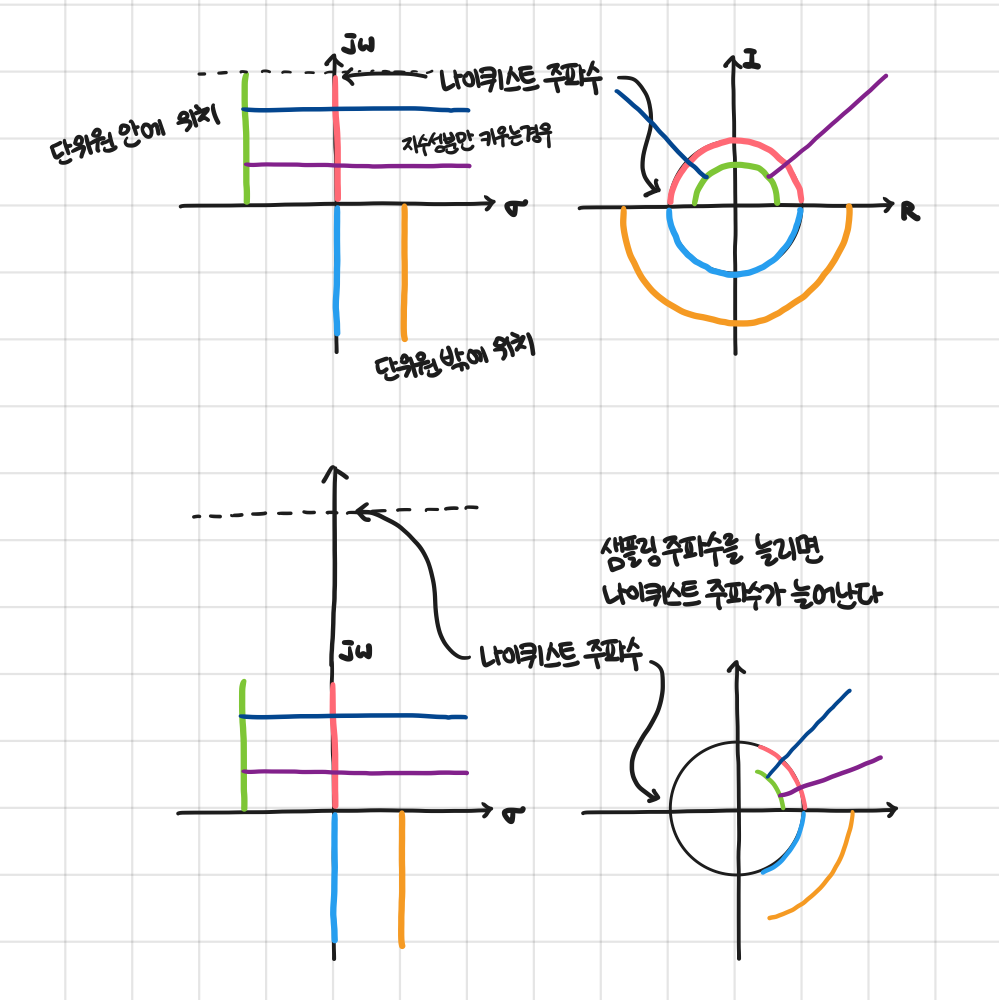 JW
나이퀴스트 주파수
I
단위원 안에 위치
지수성분만 키우는경우
σ
R
단위원 밖에 위치
샘플링 주파수를 늘리면
나이퀴스트 주파수가 늘어난다
JW
나이퀴스트 주파수
σ